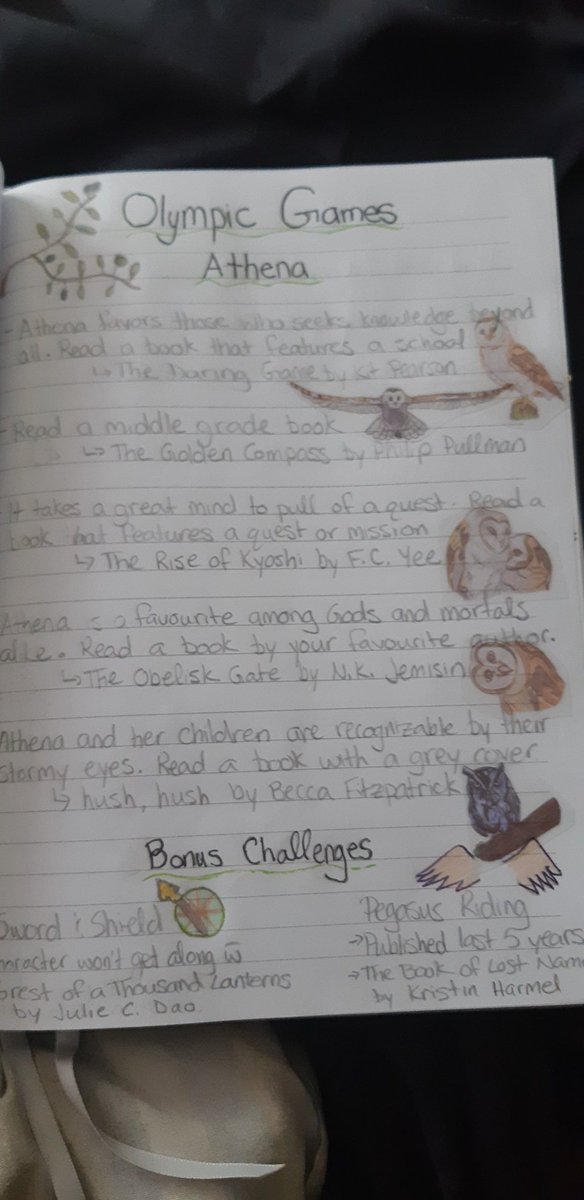 Olympic Games
Athena
- Athena favors those who seeks knowledge beyond
all. Read a book that features a school
↳ The Daring Game by Kit Pearson
- Read a middle grade book
↳ The Golden Compass by Philip Pullman
It takes a great mind to pull of a quest. Read a
book that features a quest or mission
↳ The Rise of Kyoshi by F.C. Yee
Athena is a favourite among Gods and mortals
alike. Read a book by your favourite author.
↳ The Obelisk Gate by N.K. Jemisin
Athena and her children are recognizable by their
stormy eyes. Read a book with a grey cover
↳ hush, hush by Becca Fitzpatrick
Bonus Challenges
Sword & Shield
character won't get along w̄
Forest of a Thousand Lanterns
by Julie C. Dao
Pegasus Riding
→ Published last 5 years
→ The Book of Lost Name
by Kristin Harmel